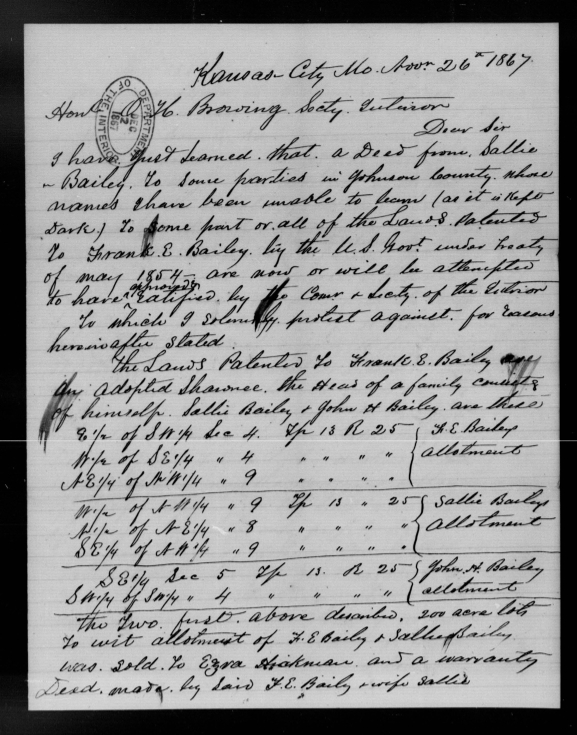 Kansas City Mo. Novr 26th 1867.
Hon O. H. Browing Secty. Interior
DEPARTMENT OF THE INTERIOR DEC 2 1867
Dear Sir
I have just learned. that. a Deed from. Sallie
Bailey. To some parties in Johnson County. whose
names I have been unable to learn (as it is Kept
Dark.) To some part or all of the Lands Patented
To Frank E. Bailey. by the U.S. Govt. under treaty
of may 1854 – are now or will be attempted
approved &
to have ratified. by the Comr & Secty. of the Interior
To which I solemnly protest against. for reasons
hereinafter stated.
The Lands Patented To Frank E. Bailey
an adopted Shawnee. the Head of a family consists
of himself. Sallie Bailey & John H Bailey. are these
E 1/2 of S W 1/4 Sec 4. Tp 13 R 25 F. E. Baileys
W 1/2 of S E 1/4 " 4 " " " " allotment
N E 1/4 of N W 1/4 " 9 " " " "
W 1/2 of N W 1/4 " 9 Tp 13 " 25 Sallie Baileys
N 1/2 of N E 1/4 " 8 " " " " allotment
S E 1/4 of N W 1/4 " 9 " " " "
S E 1/4 Sec 5 Tp 13. R 25 John. H. Bailey
S W 1/4 of S W 1/4 " 4 " " " " allotment
The Two. first. above described. 200 acre lots
To wit allotment of F. E Baily & Sallie Bailey
was. sold. To Ezra Hickman. and a warranty
Deed. made. by said F. E. Baily & wife Sallie